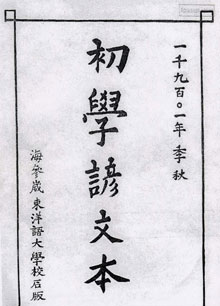 一千九百〇一年 季秋
初學諺文本
海參崴 東洋語大學校石版